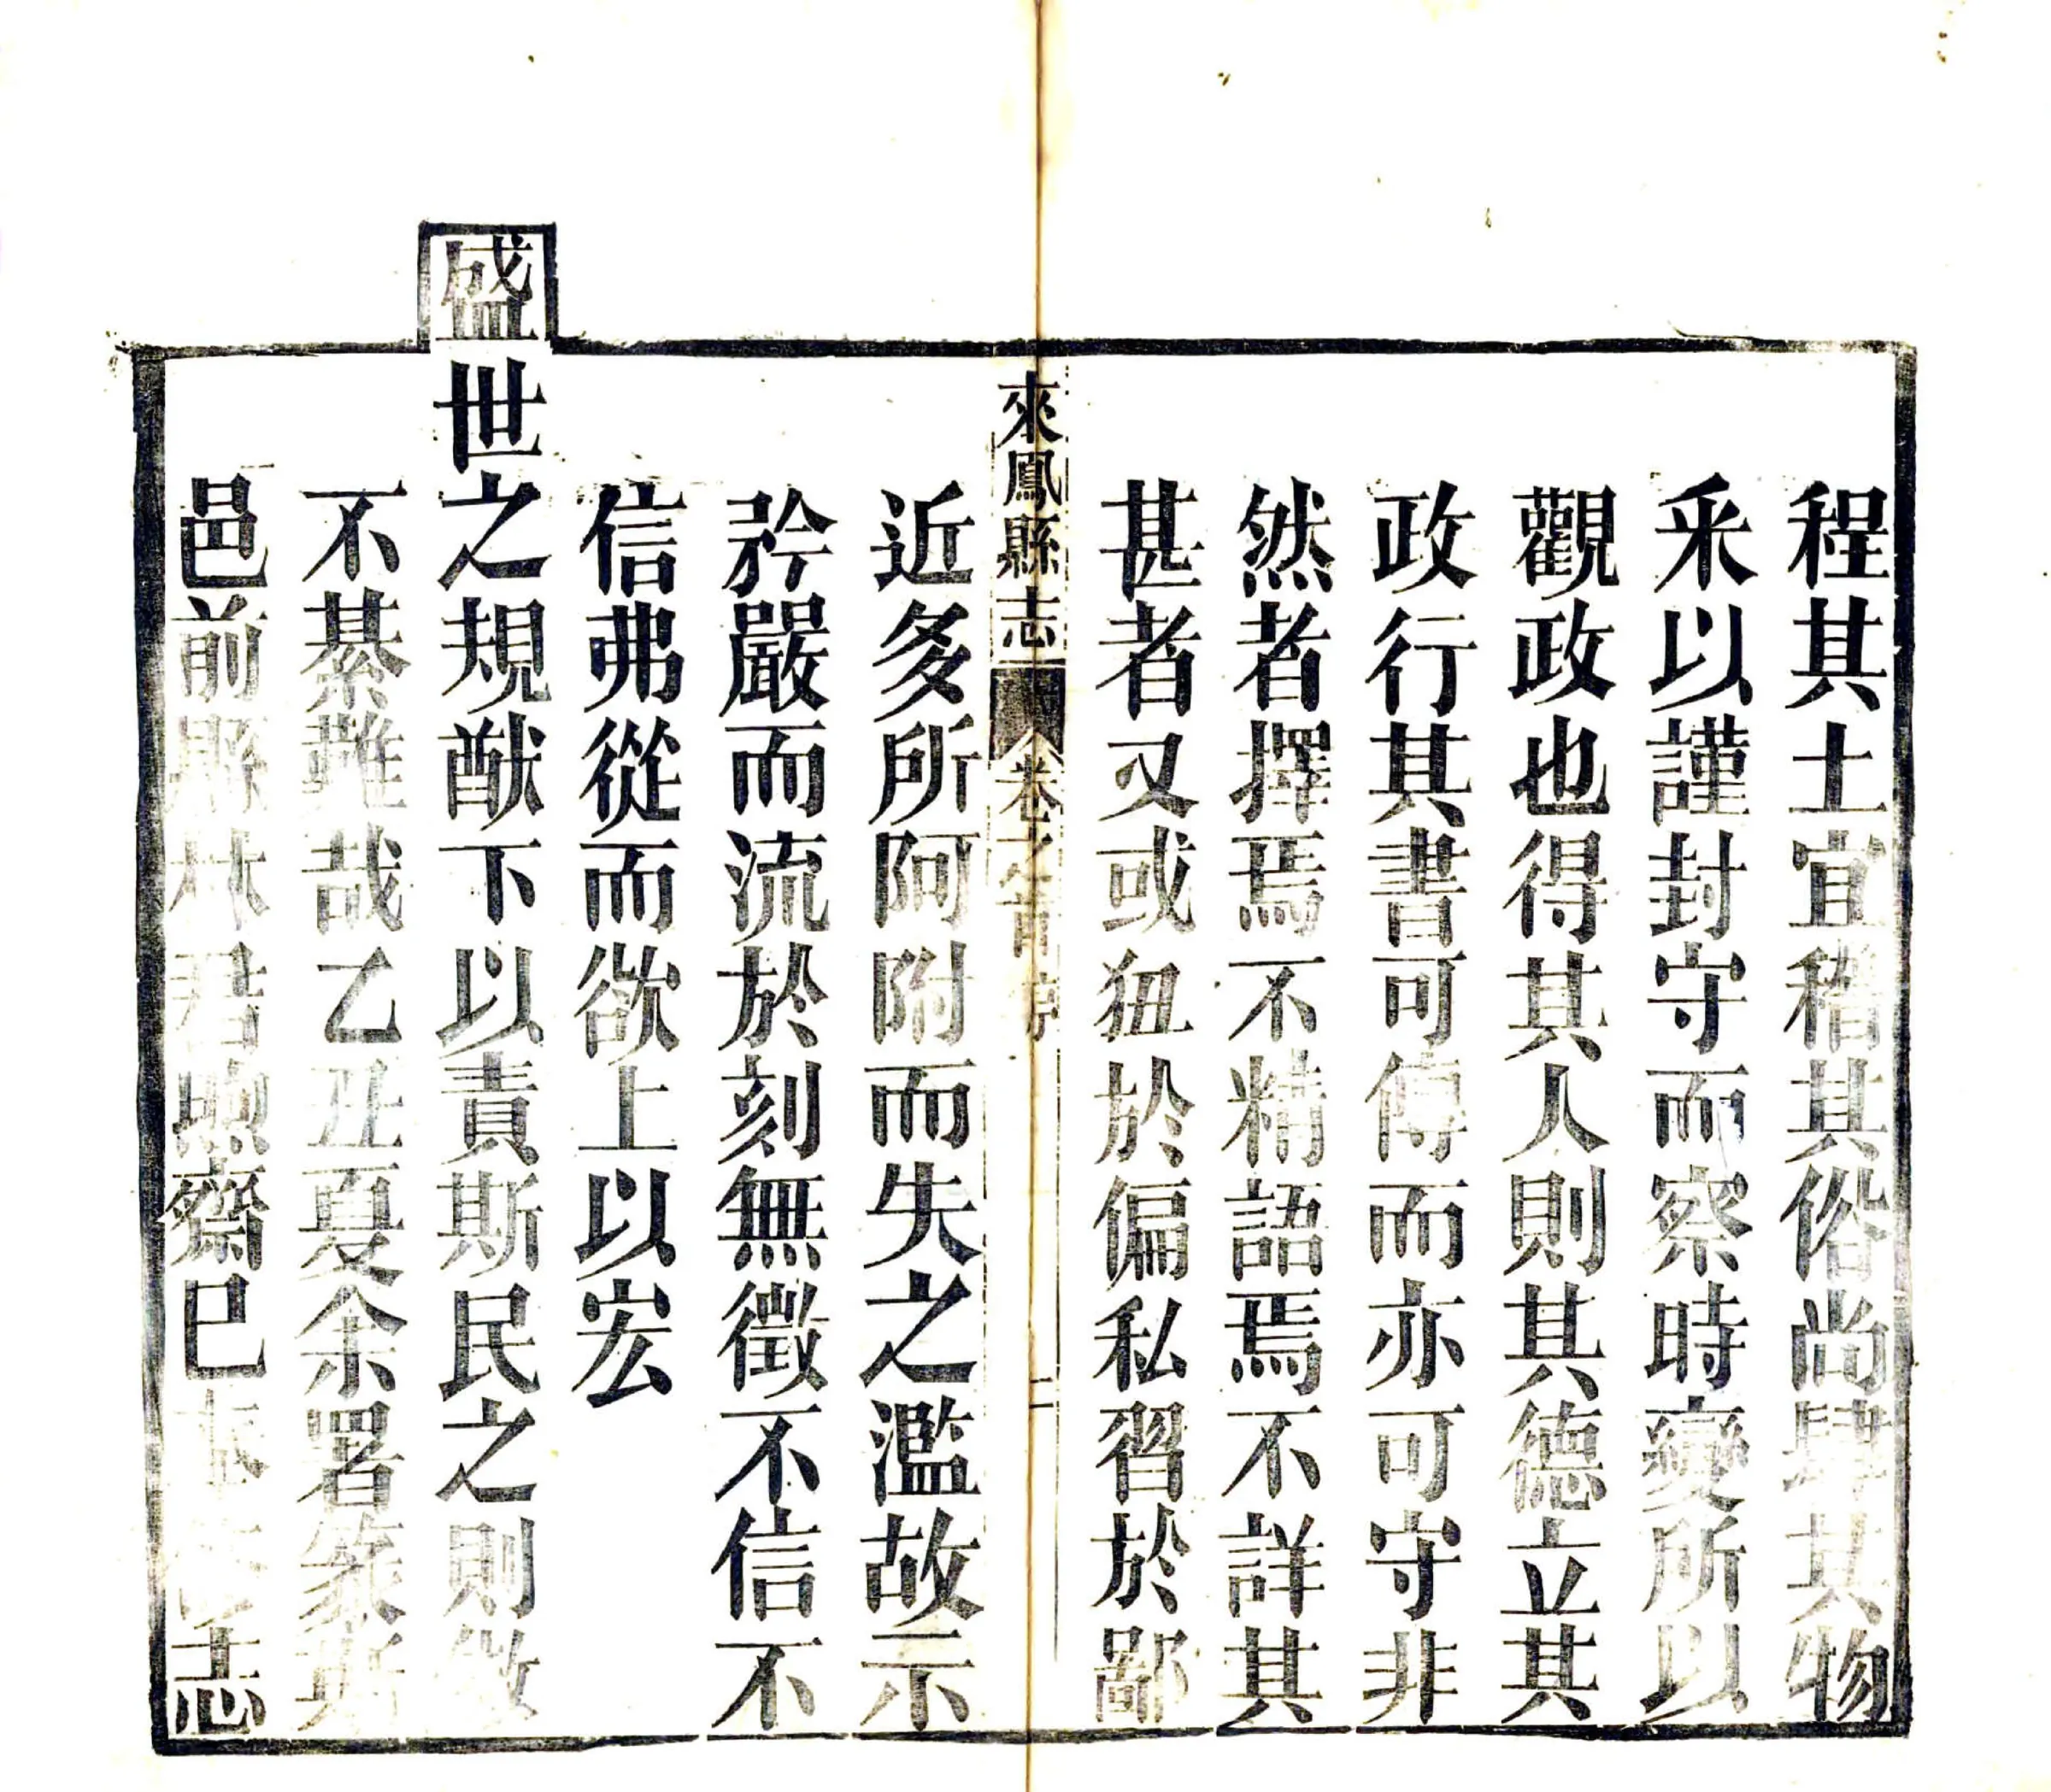 程其土宜稽其俗尚肆其物
采以謹封守而察時變所以
觀政也得其人則其德立其
政行其書可傳而亦可守非
然者擇焉不精語焉不詳其
甚者又或狃於偏私習於鄙
來鳳縣志 卷之首序 二
近多所阿附而失之濫故示
矜嚴而流於刻無徵不信不
信弗從而欲上以宏
盛世之規猷下以責斯民之則傚
不綦難哉乙丑夏余署篆斯
邑前縣林君煦齋已奉志